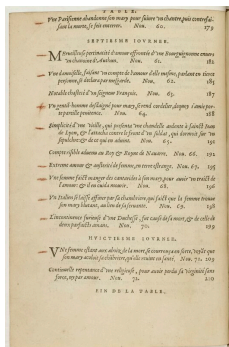 TABLE.
Vne Parisienne abandonne son mary pour suiure vn chantre, puis contrefai-
sant la morte, se feit enterrer. Nou. 60. 179
SEPTIESME IOVRNEE.
MErueilleuse pertinacité d'amour effrontée d'vne enuers
vn chanoine d'Authun. Nou. 61. 182
Vne damoyselle, faisant vn compte de l'amour d'elle mesme, parlant en tierce
personne, se declara par mesgarde. Nou. 62. 185
Notable chasteté d'vn seigneur François. Nou. 63. 187
Vn gentil-homme desdaigné pour mary, se rend cordelier, dequoy s'amie por-
te pareille penitence. Nou. 64. 188
Simplicité d'vne vieille, qui presenta vne chandelle ardente à sainct Iean
de Lyon, & l'attacha contre le front d'vn soldat, qui dormoit sur vn
sepulchre: & de ce qui en aduint. Nou. 65. 191
Compte risible aduenu au Roy & Royne de Nauarre. Nou. 66. 192
Extreme amour & austerité de femme, en terre estrange. Nou. 67. 195
Vne femme faict manger des cantarides à son mary, pour auoir vn traict de
l'amour: & il en cuida mourir. Nou. 68. 196
Vn Italien se laissa affiner par sa chambriere, qui faict que la femme trouue
son mary blutant, au lieu de sa seruante. Nou. 69. 198
L'incontinence furieuse d'vne Duchesse, fut cause de sa mort, & de celle de
deux parfaicts amans. Nou. 70. 199
HVICTIESME IOVRNEE.
VNe femme estant aux abois de la mort, se courrouça en sorte, voyãt que
son mary accoloit sa chambriere, qu'elle reuint en santé. Nou. 71. 209
Continuelle repentance d'vne religieuse, pour auoir perdu sa virginité sans
force, ny par amour. Nou. 72. 210
FIN DE LA TABLE.